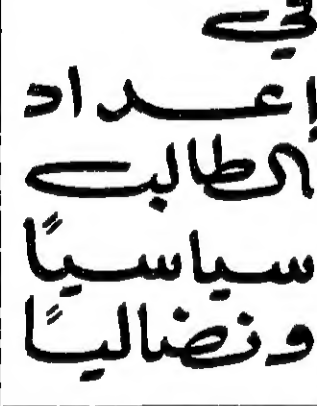 في
إعداد
الطالب
سياسيًا
ونضاليًا